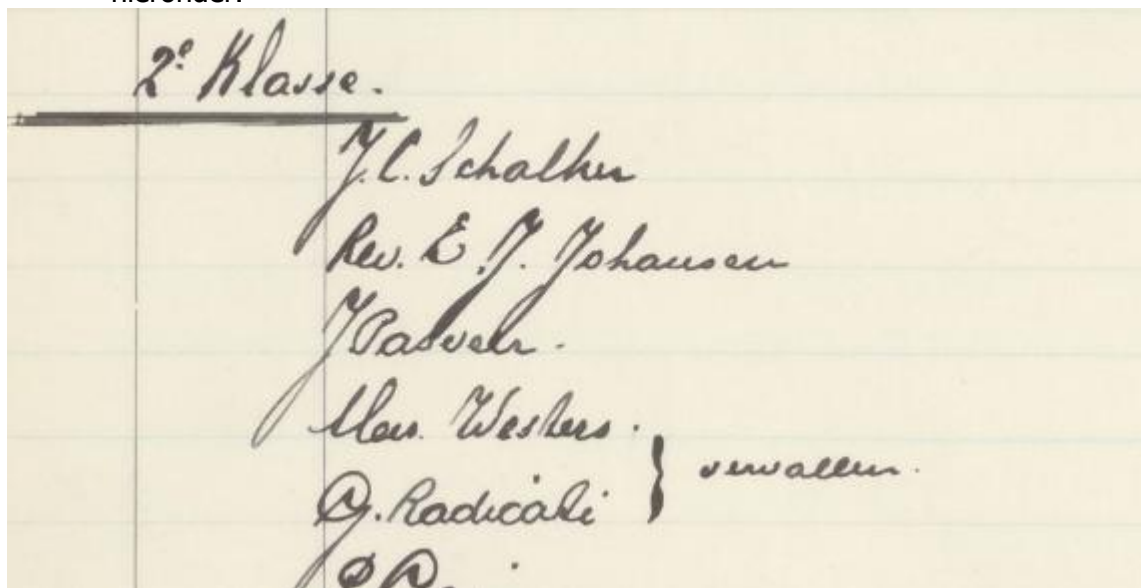 hieronder.
2e Klasse.
J. C. Schalker
Rev. E. J. Johansen
J Pasveer.
Westers.
Radicati
vervallen.